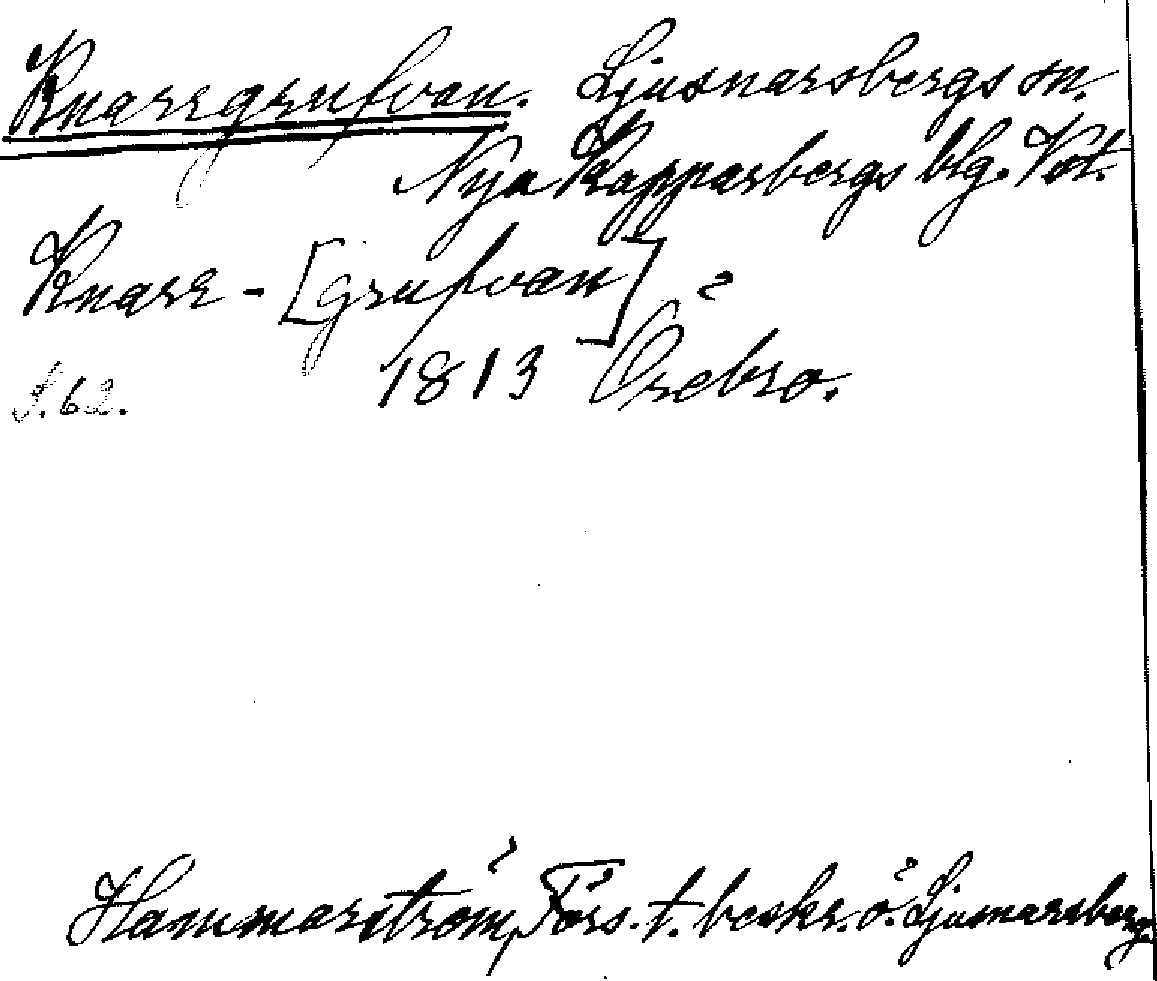 Knarrgrufvan. Ljusnarsbergs sn.
Nya Kopparbergs blg. Vst.
Knarr-[grufvan]
S. 62. 1813 Örebro.
Hammarström, Förs. t. beskr. ö. Ljusnarsberg.